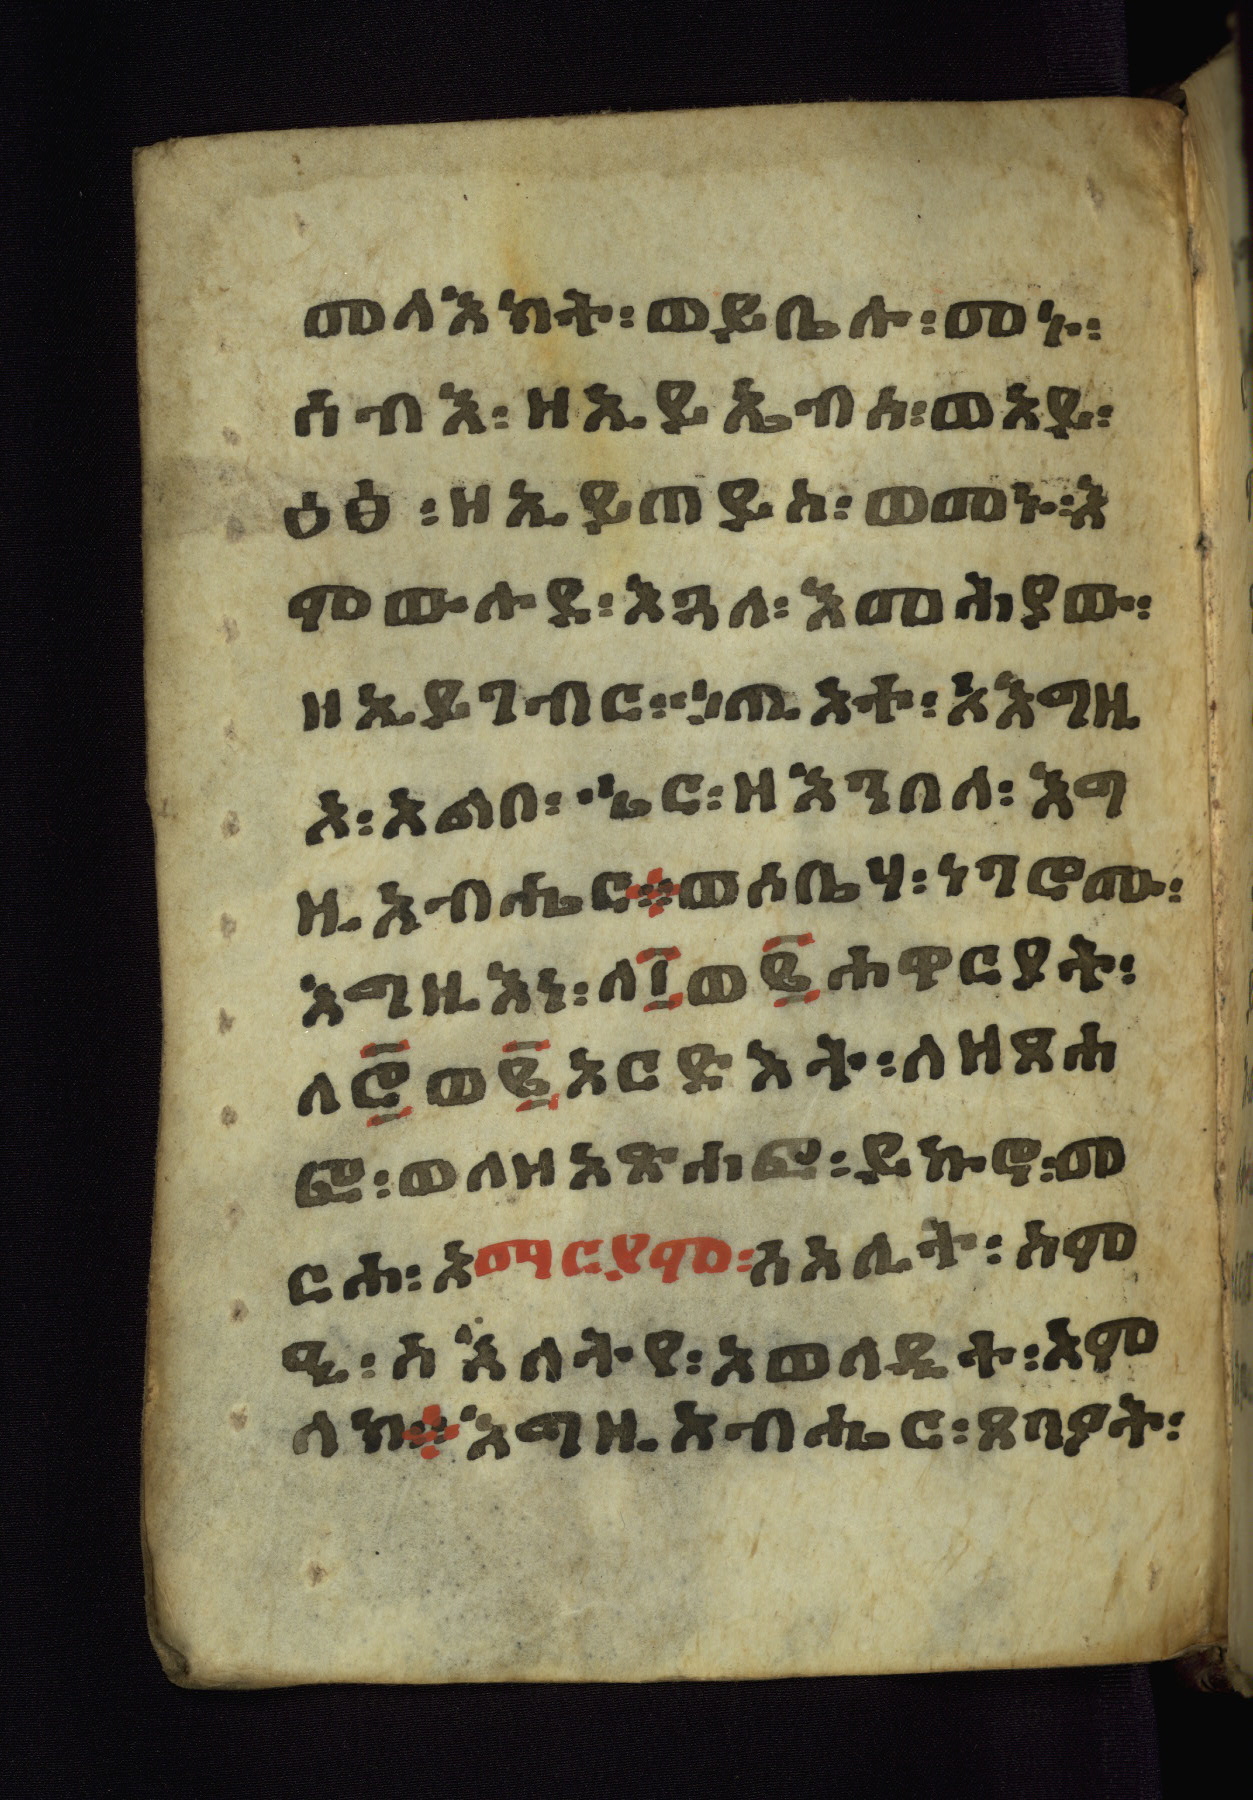 መላእክት፡ወይቤሉ፡መኑ፡
ሰብእ፡ዘኢይኤብስ፡ወአይ፡
ዕፅ፡ዘኢይጠይስ፡ወመኑ፡እ
ምውሉደ፡እጓለ፡እመሕያው፡
ዘኢይገብር፡ኃጢአተ፡አእግዚ
እ፡አልቦ፡ኄር፡ዘእንበለ፡እግ
ዚአብሔር፨ወሶቤሃ፡ነገሮሙ፡
እግዚእነ፡ለ፲ወ፪ሐዋርያት፡
ለ፸ወ፪አርድእት፡ለዘጸሐ
ፎ፡ወለዘአጽሐፎ፡ይኩኖ፡መ
ርሐ፡አማርያም፡ሰአሊት፡አም
ዔ፡ሰእለትየ፡አወለዲተ፡አም
ላክ፨እግዚአብሔር፡ጸባዖት፡